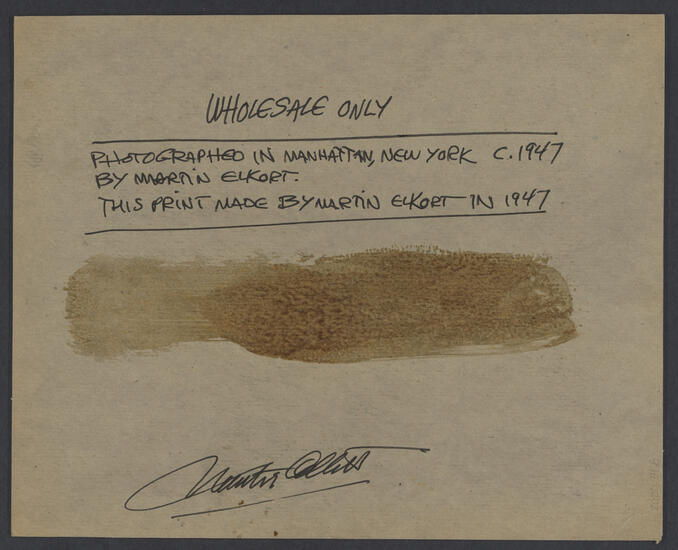 WHOLESALE ONLY
PHOTOGRAPHED IN MANHATTAN, NEW YORK C. 1947
BY MARTIN ELKORT.
THIS PRINT MADE BY MARTIN ELKORT IN 1947
Martin Elkort